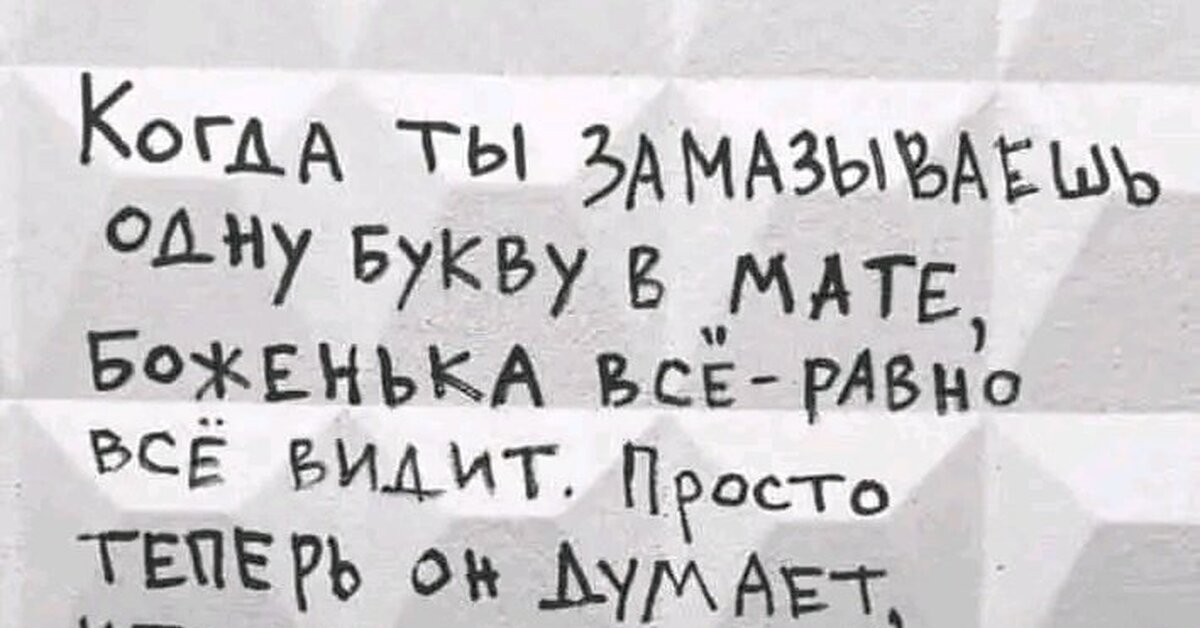 Когда ты замазываешь
одну букву в мате,
Боженька всё-равно
всё видит. Просто
теперь он думает,